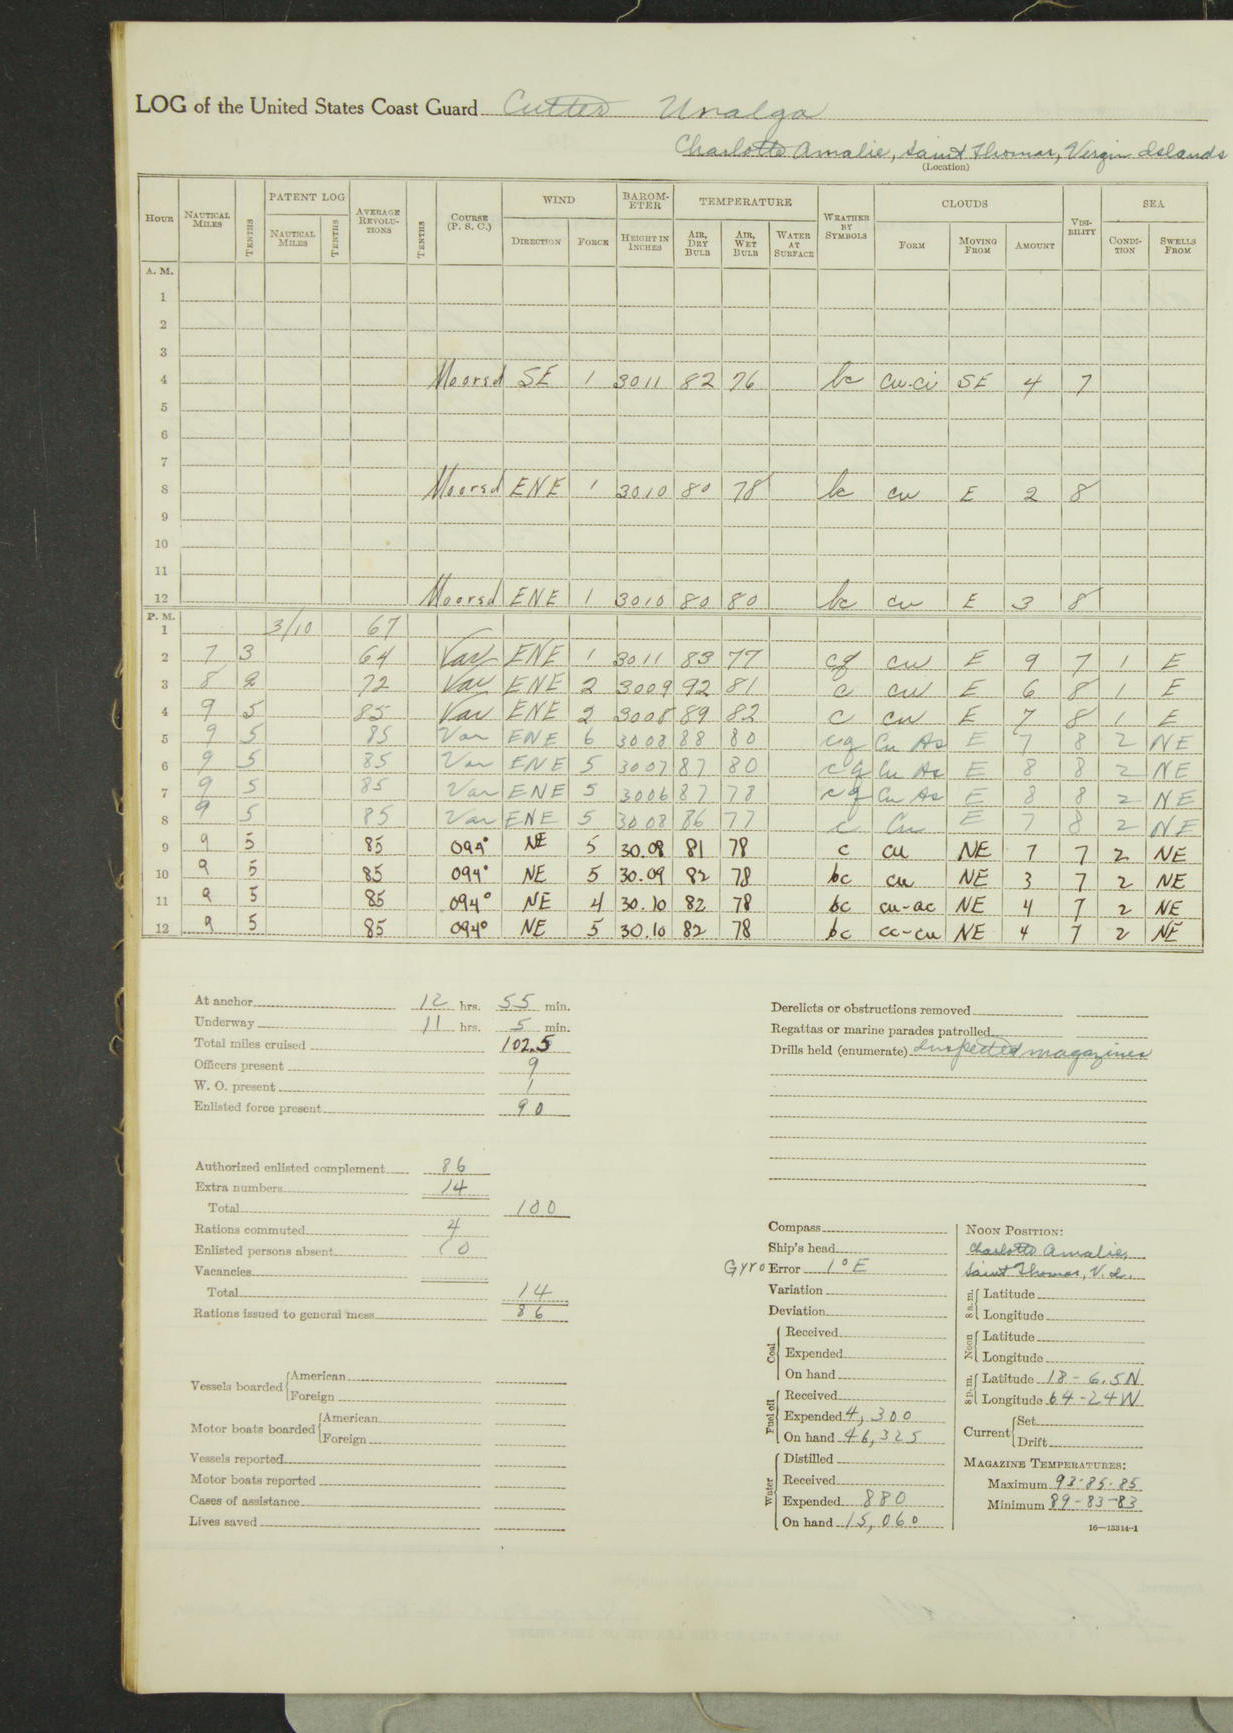 LOG of the United States Coast Guard Cutter Unalga
Charlotte Amalie, Saint Thomas, Virgin Islands
(Location)
HOUR NAUTICAL MILES TENTHS PATENT LOG NAUTICAL MILES TENTHS AVERAGE REVOLUTIONS TENTHS COURSE (P. S. C.) WIND DIRECTION FORCE BAROMETER HEIGHT IN INCHES TEMPERATURE AIR, DRY BULB AIR, WET BULB WATER AT SURFACE WEATHER BY SYMBOLS CLOUDS FORM MOVING FROM AMOUNT VISIBILITY SEA CONDITION SWELLS FROM
A. M.
1
2
3
4 Moored SE 1 3011 82 76 bc cu-ci SE 4 7
5
6
7
8 Moored ENE 1 3010 80 78 bc cu E 2 8
9
10
11
12 Moored ENE 1 3010 80 80 bc cu E 3 8
P. M.
1 3/10 67
2 7 3 64 Var ENE 1 3011 83 77 cq cu E 9 7 1 E
3 8 2 72 Var ENE 2 3009 92 81 c cu E 6 8 1 E
4 9 5 85 Var ENE 2 3008 89 82 c cu E 7 8 1 E
5 9 5 85 Var ENE 6 3008 88 80 cq Cu As E 7 8 2 NE
6 9 5 85 Var ENE 5 3007 87 80 cq Cu As E 8 8 2 NE
7 9 5 85 Var ENE 5 3006 87 78 cq Cu As E 8 8 2 NE
8 9 5 85 Var ENE 5 3008 86 77 c Cu E 7 8 2 NE
9 9 5 85 094° NE 5 30.08 81 78 c cu NE 7 7 2 NE
10 9 5 85 094° NE 5 30.09 82 78 bc cu NE 3 7 2 NE
11 9 5 85 094° NE 4 30.10 82 78 bc cu-ac NE 4 7 2 NE
12 9 5 85 094° NE 5 30.10 82 78 bc cc-cu NE 4 7 2 NE
At anchor 12 hrs. 55 min.
Underway 11 hrs. 5 min.
Total miles cruised 102.5
Officers present 9
W. O. present 1
Enlisted force present 90
Authorized enlisted complement 86
Extra numbers 14
Total 100
Rations commuted 4
Enlisted persons absent 10
Vacancies
Total 14
Rations issued to general mess 86
Vessels boarded American
Foreign
Motor boats boarded American
Foreign
Vessels reported
Motor boats reported
Cases of assistance
Lives saved
Derelicts or obstructions removed
Regattas or marine parades patrolled
Drills held (enumerate) Inspected magazines
Compass
Ship's head
Gyro Error 1° E
Variation
Deviation
Coal
Received
Expended
On hand
Fuel oil
Received
Expended 4,300
On hand 46,325
Water
Distilled
Received
Expended 880
On hand 15,060
NOON POSITION:
Charlotte Amalie,
Saint Thomas, V. I.
8 a. m. Latitude
Longitude
Noon Latitude
Longitude
8 p. m. Latitude 18-6.5N
Longitude 64-24W
Current Set
Drift
MAGAZINE TEMPERATURES:
Maximum 93-85-85
Minimum 89-83-83
16—13314-1